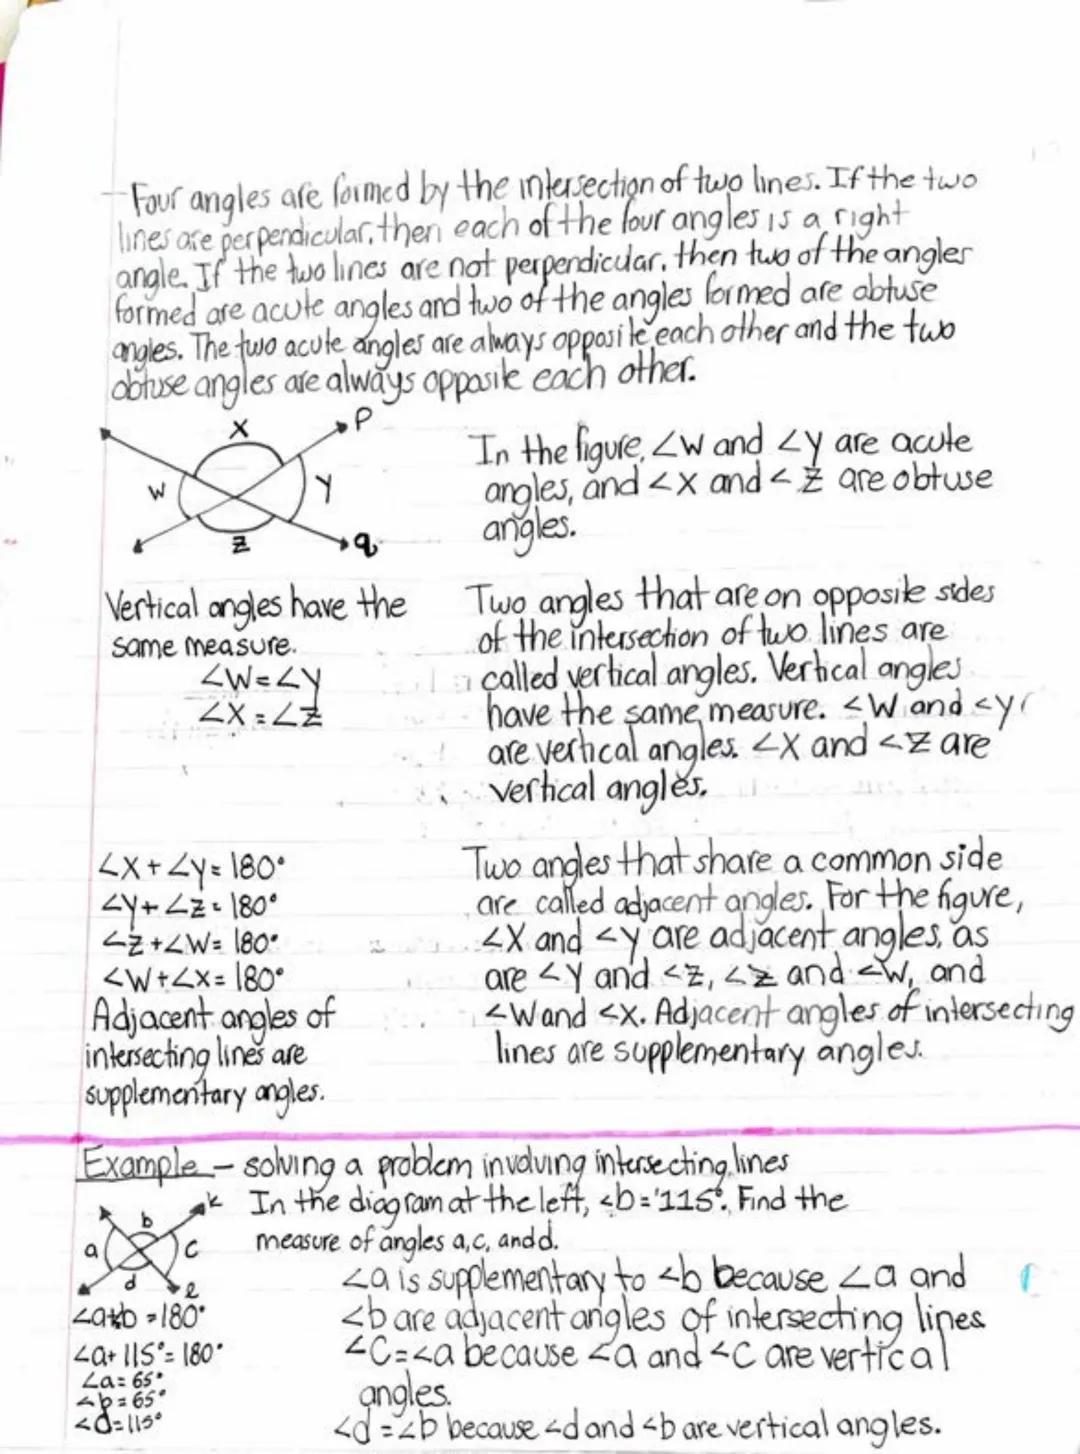 Four angles are formed by the intersection of two lines. If the two
lines are perpendicular, then each of the four angles is a right
angle. If the two lines are not perpendicular, then two of the angles
formed are acute angles and two of the angles formed are obtuse
angles. The two acute angles are always opposite each other and the two
obtuse angles are always opposite each other.
X
P
W
y
Z
q
In the figure, ∠W and ∠y are acute
angles, and ∠X and ∠Z are obtuse
angles.
Vertical angles have the
same measure.
∠W=∠y
∠X=∠Z
Two angles that are on opposite sides
of the intersection of two lines are
called vertical angles. Vertical angles
have the same measure. ∠W and ∠y
are vertical angles. ∠X and ∠Z are
vertical angles.
∠X+∠y=180°
∠y+∠Z=180°
∠Z+∠W=180°
∠W+∠X=180°
Adjacent angles of
intersecting lines are
supplementary angles.
Two angles that share a common side
are called adjacent angles. For the figure,
∠X and ∠y are adjacent angles, as
are ∠y and ∠Z, ∠Z and ∠W, and
∠W and ∠X. Adjacent angles of intersecting
lines are supplementary angles.
Example - solving a problem involving intersecting lines
In the diagram at the left, ∠b=115°. Find the
measure of angles a, c, and d.
k
b
a
c
d
l
∠a+b=180°
∠a+115°=180°
∠a=65°
∠b=65°
∠d=115°
∠a is supplementary to ∠b because ∠a and
∠b are adjacent angles of intersecting lines
∠C=∠a because ∠a and ∠C are vertical
angles.
∠d=∠b because ∠d and ∠b are vertical angles.